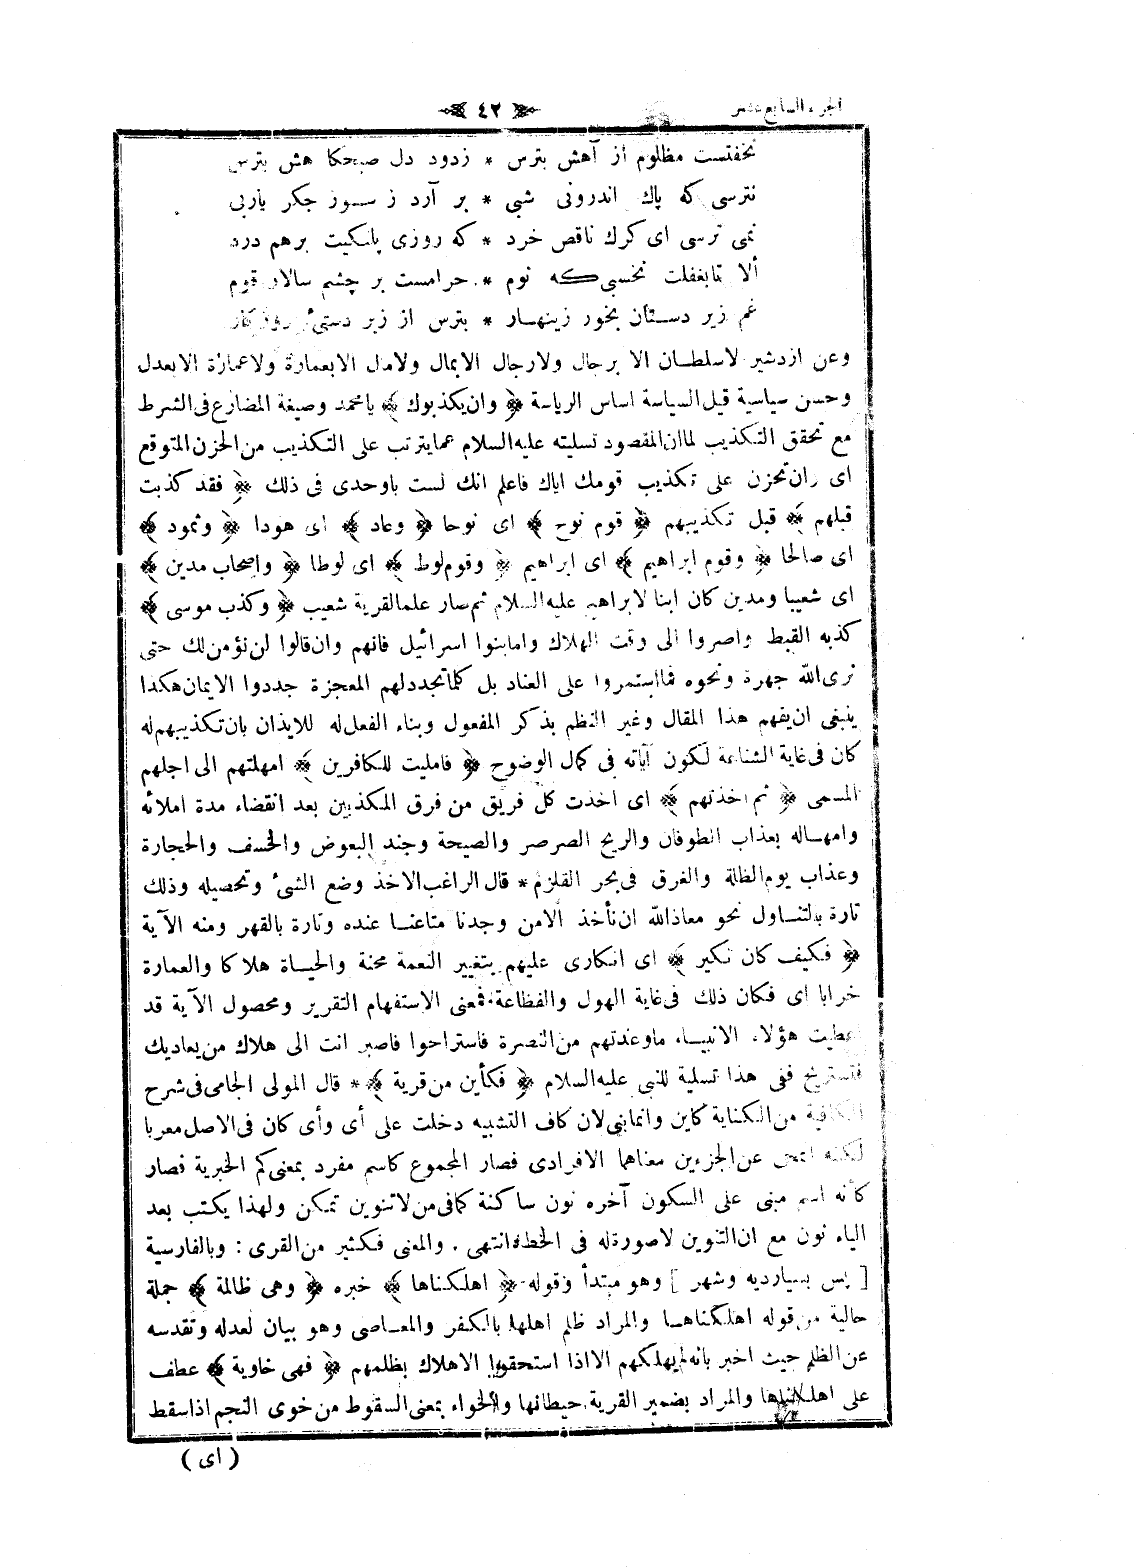 الجزء السابع عشر
٤٢
نخفتست مظلوم از آهش بترس * زدود دل صبحكا هش بترس
نترسى كه پاك اندرونى شبى * بر آرد ز سوز جكر ياربى
نمى ترسى اى كرك ناقص خرد * كه روزى پلنكيت برهم درد
ألا تابغفلت نخسبى كه نوم * حرامست بر چشم سالار قوم
غم زير دستان بخور زينهار * بترس از زبر دستىء روزكار
وعن ازدشير لاسلطان الا برجال ولارجال الابمال ولامال الابعمارة ولاعمارة الابعدل
وحسن سياسية قيل السياسة اساس الرياسة ﴿ وان يكذبوك ﴾ يامحمد وصيغة المضارع فى الشرط
مع تحقق التكذيب لماان المقصود تسليته عليه السلام عمايترتب على التكذيب من الحزن المتوقع
اى ران تحزن على تكذيب قومك اياك فاعلم انك لست باوحدى فى ذلك ﴿ فقد كذبت
قبلهم ﴾ قبل تكذيبهم ﴿ قوم نوح ﴾ اى نوحا ﴿ وعاد ﴾ اى هودا ﴿ وثمود ﴾
اى صالحا ﴿ وقوم ابراهيم ﴾ اى ابراهيم ﴿ وقوم لوط ﴾ اى لوطا ﴿ واصحاب مدين ﴾
اى شعيبا ومدين كان ابنا لابراهيم عليه السلام ثم صار علما لقرية شعيب ﴿ وكذب موسى ﴾
كذبه القبط واصروا الى وقت الهلاك واما بنوا اسرائيل فانهم وان قالوا لن نؤمن لك حتى
نرى الله جهرة ونحوه فمااستمروا على العناد بل كلما تجددلهم المعجزة جددوا الايمان هكذا
ينبغى ان يفهم هذا المقال وغير النظم بذكر المفعول وبناء الفعل له للايذان بان تكذيبهم له
كان فى غاية الشناعة لكون آياته فى كمال الوضوح ﴿ فامليت للكافرين ﴾ امهلتهم الى اجلهم
المسمى ﴿ ثم اخذتهم ﴾ اى اخذت كل فريق من فرق المكذبين بعد انقضاء مدة املائه
وامهاله بعذاب الطوفان والريح الصرصر والصيحة وجند البعوض والخسف والحجارة
وعذاب يوم الظلة والغرق فى بحر القلزم * قال الراغب الاخذ وضع الشىء وتحصيله وذلك
تارة بالتناول نحو معاذالله ان نأخذ الامن وجدنا متاعنا عنده وتارة بالقهر ومنه الآية
﴿ فكيف كان نكير ﴾ اى انكارى عليهم بتغيير النعمة محنة والحياة هلاكا والعمارة
خرابا اى فكان ذلك فى غاية الهول والفظاعة فمعنى الاستفهام التقرير ومحصول الآية قد
اعطيت هؤلاء الانبياء ماوعدتهم من النصرة فاستراحوا فاصبر انت الى هلاك من يعاديك
فتستريح ففى هذا تسلية للنبى عليه السلام ﴿ فكأين من قرية ﴾ * قال المولى الجامى فى شرح
الكافية من الكناية كاين وانمابنى لان كاف التشبيه دخلت على أى وأى كان فى الاصل معربا
لكنه انمحى عن الجزءين معناهما الافرادى فصار المجموع كاسم مفرد بمعنى كم الخبرية فصار
كأنه اسم مبنى على السكون آخره نون ساكنة كمافى من لاتنوين تمكن ولهذا يكتب بعد
الياء نون مع ان التنوين لاصورة له فى الخط انتهى . والمعنى فكثير من القرى : وبالفارسية
[ پس بسيارديه وشهر ] وهو مبتدأ وقوله ﴿ اهلكناها ﴾ خبره ﴿ وهى ظالمة ﴾ جملة
حالية من قوله اهلكناها والمراد ظلم اهلها بالكفر والمعاصى وهو بيان لعدله وتقدسه
عن الظلم حيث اخبر بانه لم يهلكهم الااذا استحقوا الاهلاك بظلمهم ﴿ فهى خاوية ﴾ عطف
على اهلكناها والمراد بضمير القرية حيطانها والخواء بمعنى السقوط من خوى النجم اذاسقط
( اى )